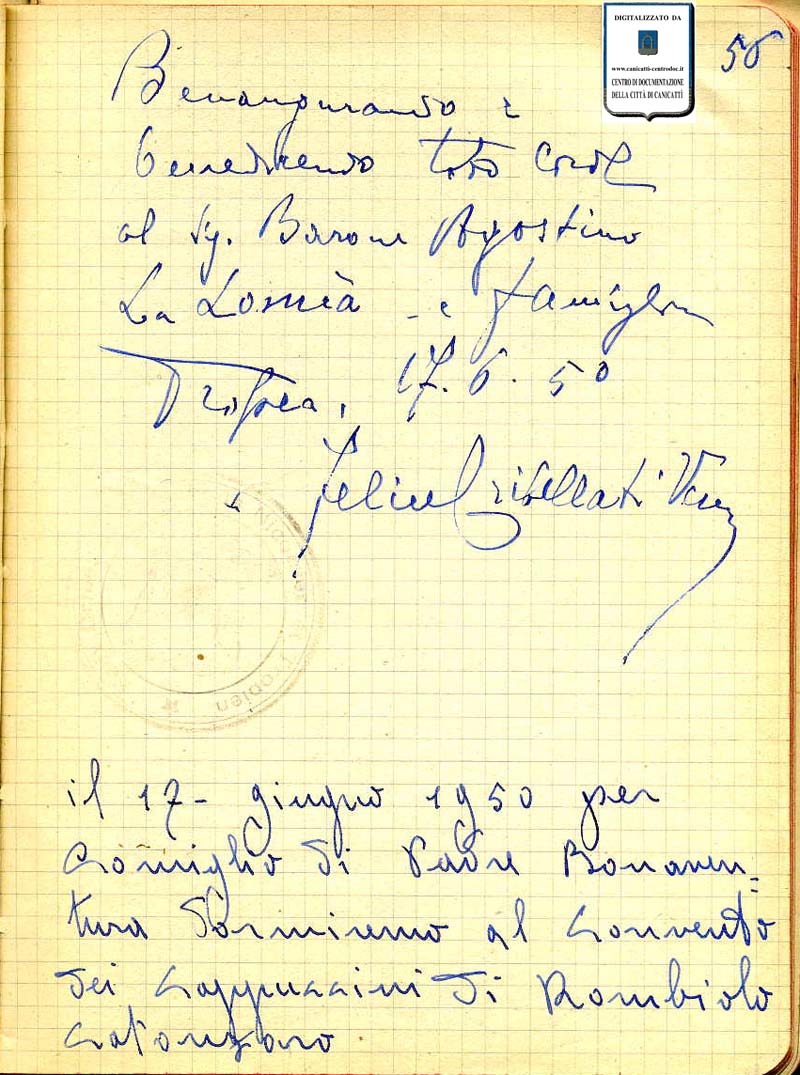 DIGITALIZZATO DA
www.canicatti-centrodoc.it
CENTRO DI DOCUMENTAZIONE
DELLA CITTÀ DI CANICATTÌ
56
Benaugurando e
benedicendo toto corde
al Sg. Barone Agostino
La Lomia - e famiglia
Tropea, 17.6.50
+ Felice Cribellati Vesc
il 17- giugno 1950 per
Consiglio di Padre Bonaven=
tura dormiremo al Convento
dei Cappuccini di Rombiolo
Catanzaro